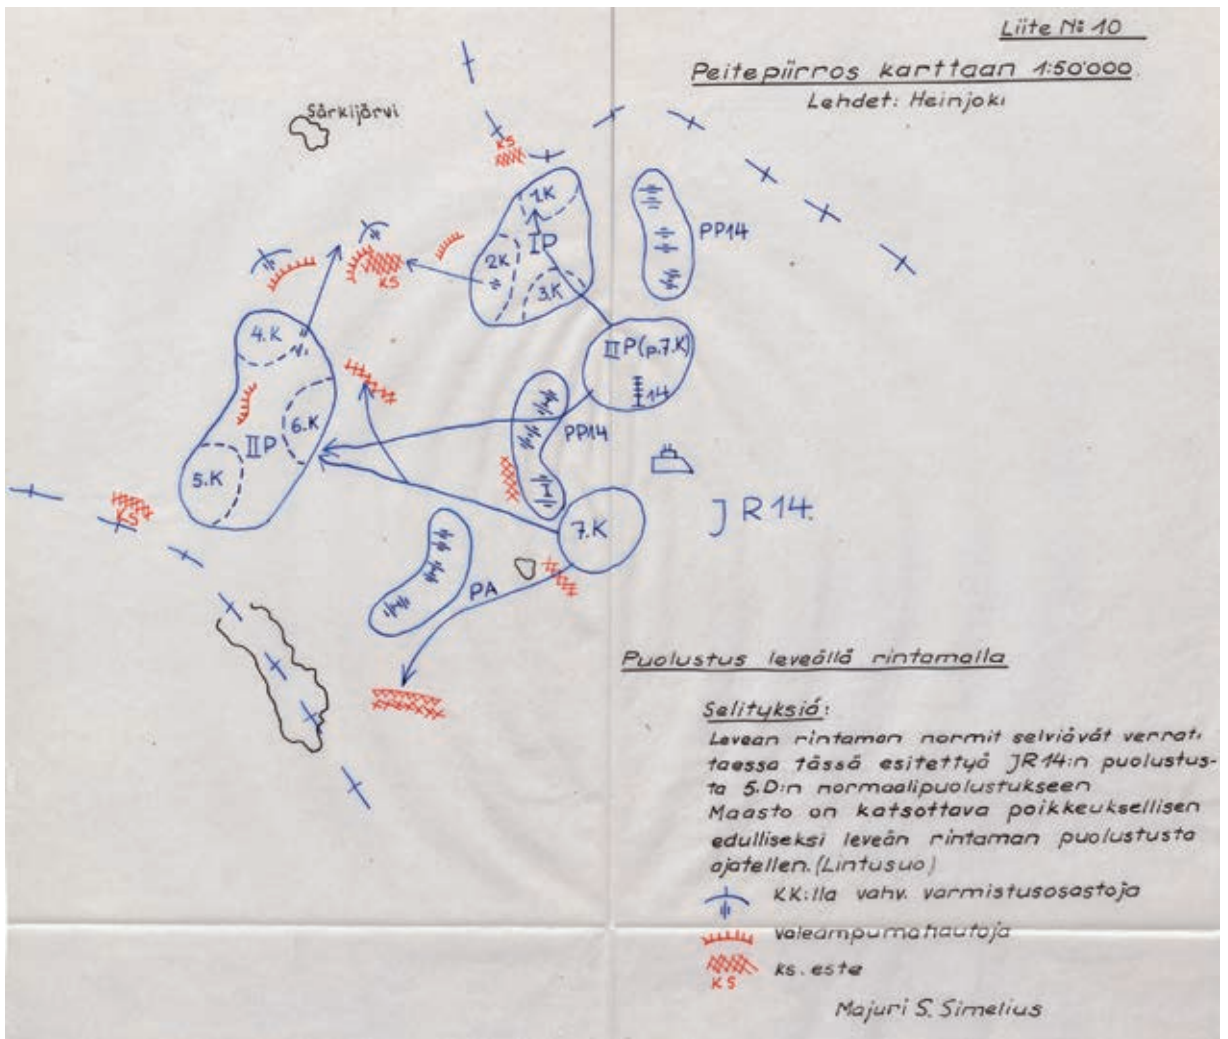 Liite No 10
Peitepiirros karttaan 1:50'000
Lehdet: Heinjoki
Särkijärvi
KS
1.K
IP
2K
3.K
PP14
KS
4.K
III P(p.7.K)
14
6.K
IIP
5.K
PP14
KS
7.K
JR14.
PA
Puolustus leveällä rintamalla
Selityksiä:
Leveän rintaman normit selviävät verrat-
taessa tässä esitettyä JR14:n puolustus-
ta 5.D:n normaalipuolustukseen
Maasto on katsottava poikkeuksellisen
edulliseksi leveän rintaman puolustusta
ajatellen. (Lintusuo)
KK:lla vahv. varmistusosastoja
valeampumahautoja
ks. este
KS
Majuri S. Simelius